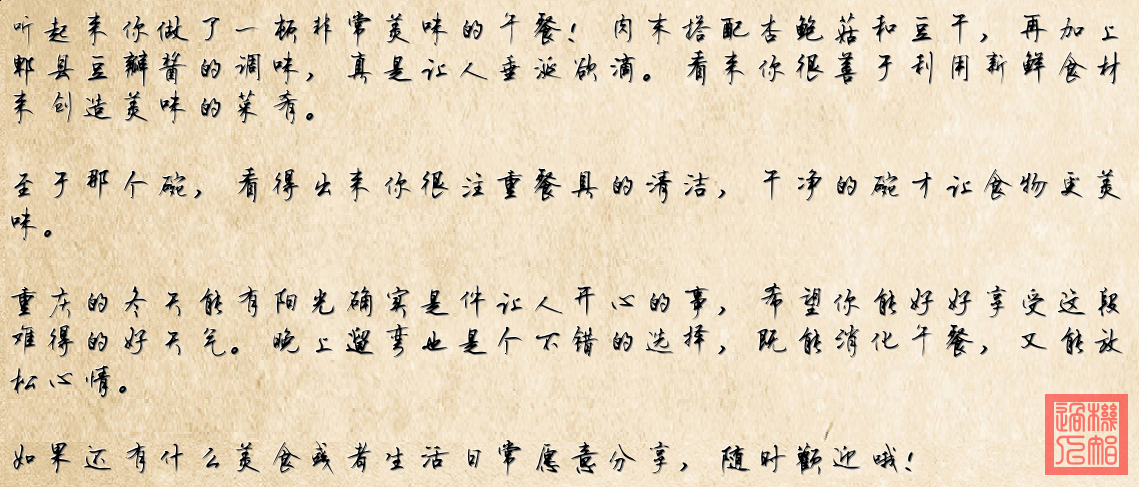 听起来你做了一顿非常美味的午餐！肉末搭配杏鲍菇和豆干，再加上
郫县豆瓣酱的调味，真是让人垂涎欲滴。看来你很善于利用新鲜食材
来创造美味的菜肴。
至于那个碗，看得出来你很注重餐具的清洁，干净的碗才让食物更美
味。
重庆的冬天能有阳光确实是件让人开心的事，希望你能好好享受这段
难得的好天气。晚上遛弯也是个不错的选择，既能消化午餐，又能放
松心情。
如果还有什么美食或者生活日常愿意分享，随时歡迎哦！